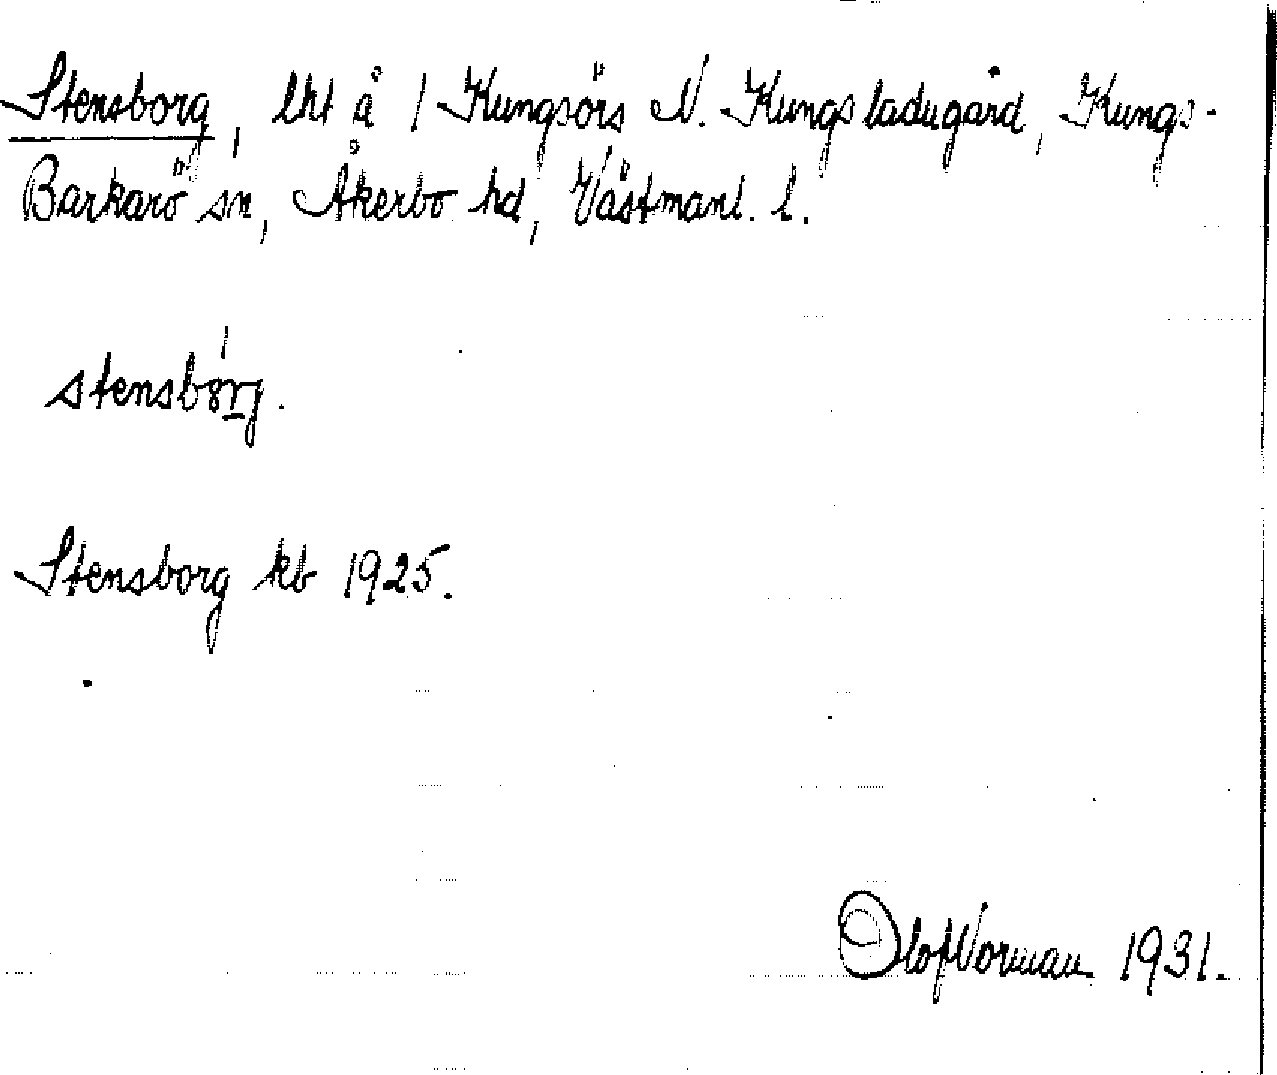 Stensborg, lht å 1 Kungsörs N. Kungsladugård, Kungs-
Barkarö sn, Åkerbo hd, Västmanl. l.
stensbørj.
Stensborg kb 1925.
Olof Norman 1931.